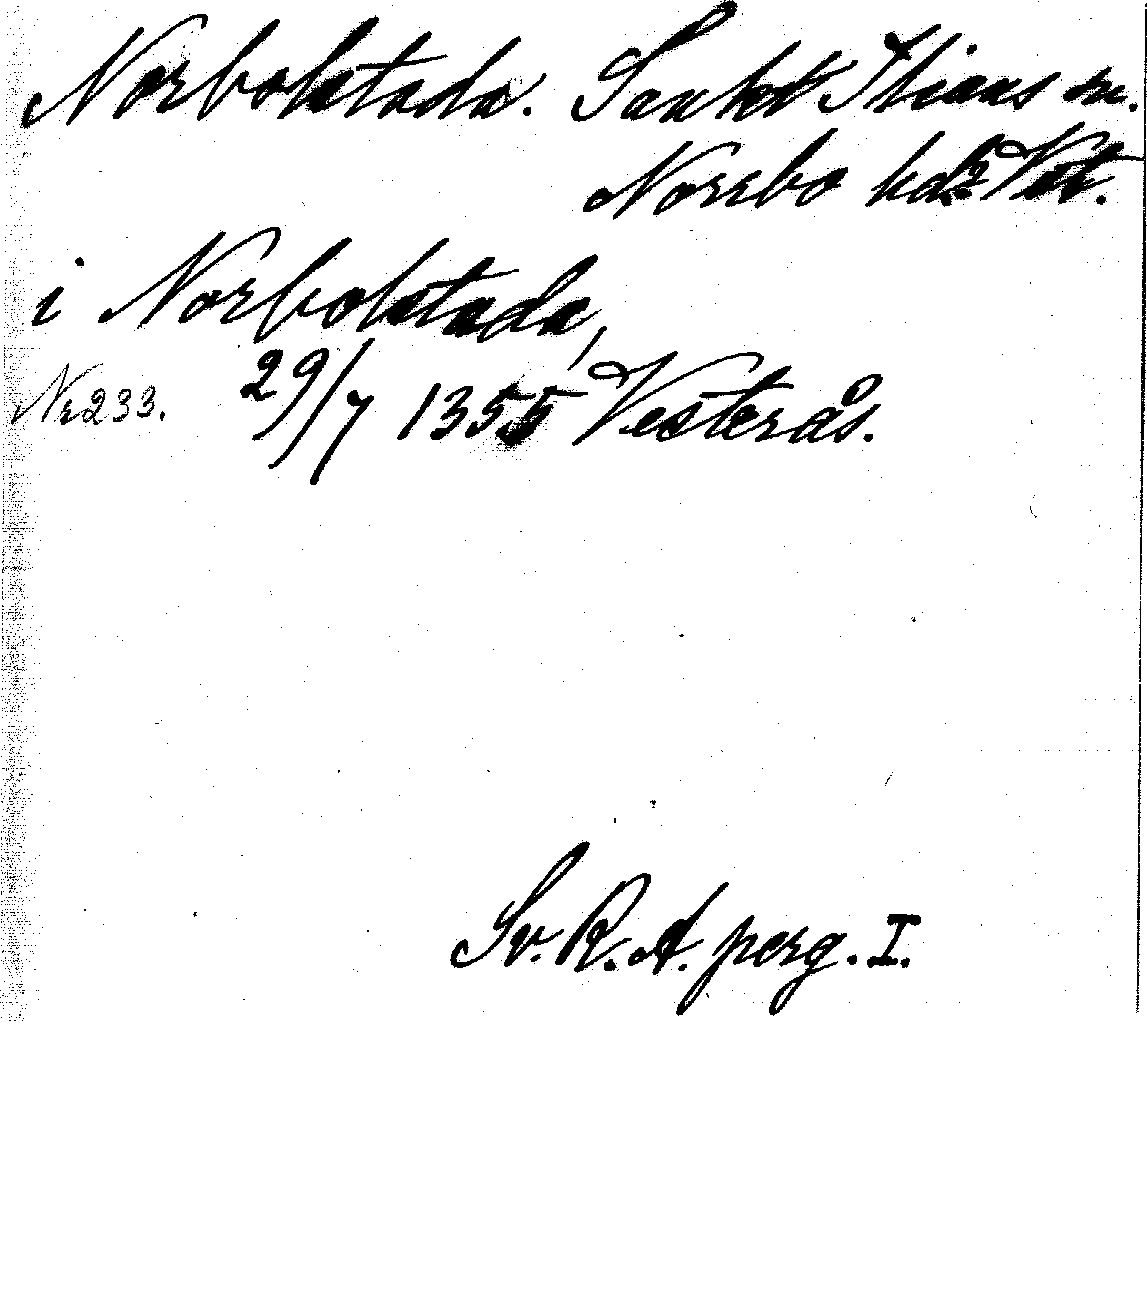 Norbolstada. Sankt Ilians sn.
Norrbo hd. Vstm.
i Norbolstada,
Nr 233. 29/7 1355 Vesterås.
Sv. R. A. perg. I.